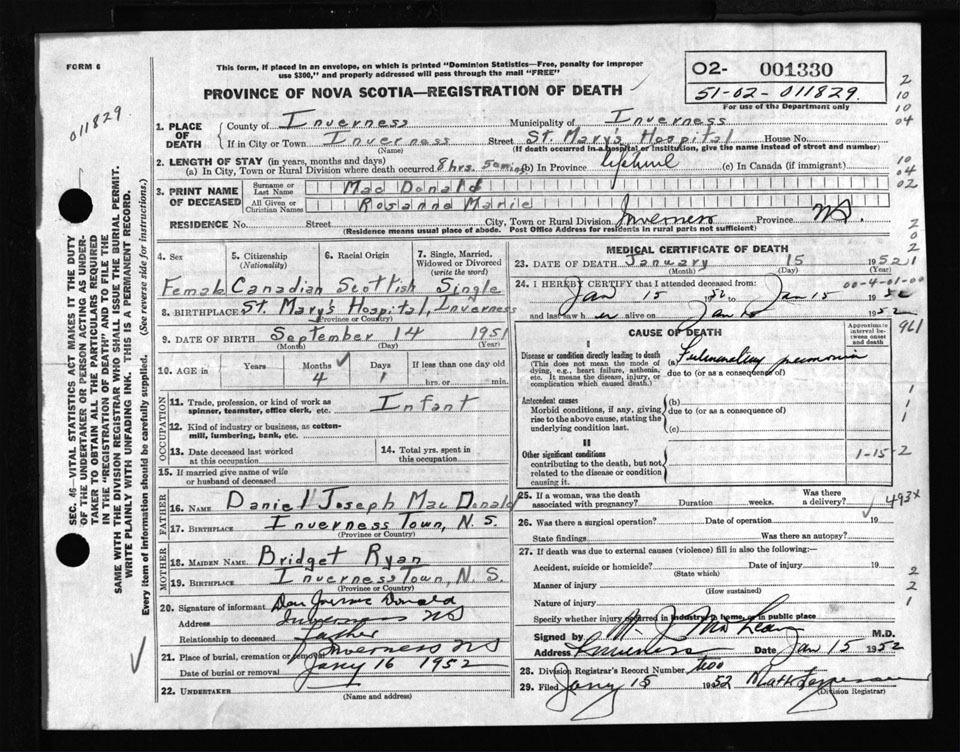 FORM 6
This form, if placed in an envelope, on which is printed "Dominion Statistics—Free, penalty for improper
use $300," and properly addressed will pass through the mail "FREE"
PROVINCE OF NOVA SCOTIA—REGISTRATION OF DEATH
O2- 001330
51-02-011829
For use of the Department only
011829
2
10
10
04
10
04
02
2
0
2
SEC. 46—VITAL STATISTICS ACT MAKES IT THE DUTY
OF THE UNDERTAKER OR PERSON ACTING AS UNDER-
TAKER TO OBTAIN ALL THE PARTICULARS REQUIRED
IN THE "REGISTRATION OF DEATH" AND TO FILE THE
SAME WITH THE DIVISION REGISTRAR WHO SHALL ISSUE THE BURIAL PERMIT.
WRITE PLAINLY WITH UNFADING INK. THIS IS A PERMANENT RECORD.
Every item of information should be carefully supplied. (See reverse side for instructions.)
1. PLACE OF DEATH
County of Inverness Municipality of Inverness
If in City or Town Inverness Street St. Mary's Hospital House No.
(Name) (If death occurred in a hospital or institution, give the name instead of street and number)
2. LENGTH OF STAY (in years, months and days)
(a) In City, Town or Rural Division where death occurred 8 hrs. 5 mins (b) In Province (c) In Canada (if immigrant)
3. PRINT NAME OF DECEASED
Surname or Last Name Mac Donald
All Given or Christian Names Rosanna Marie
RESIDENCE No. Street City, Town or Rural Division Inverness Province NS.
(Residence means usual place of abode. Post Office Address for residents in rural parts not sufficient)
4. Sex
Female
5. Citizenship (Nationality)
Canadian
6. Racial Origin
Scottish
7. Single, Married, Widowed or Divorced (write the word)
Single
8. BIRTHPLACE St. Mary's Hospital, Inverness
(Province or Country)
9. DATE OF BIRTH September 14 1951
(Month) (Day) (Year)
10. AGE in Years Months Days If less than one day old
4 1 hrs. or min.
OCCUPATION
11. Trade, profession, or kind of work as
spinner, teamster, office clerk, etc. Infant
12. Kind of industry or business, as cotton-
mill, lumbering, bank, etc.
13. Date deceased last worked
at this occupation
14. Total yrs. spent in
this occupation
15. If married give name of wife
or husband of deceased
FATHER
16. NAME Daniel Joseph Mac Donald
17. BIRTHPLACE Inverness Town, N.S.
(Province or Country)
MOTHER
18. MAIDEN NAME Bridget Ryan
19. BIRTHPLACE Inverness Town, N.S.
(Province or Country)
20. Signature of informant Donald
Address Inverness NS
Relationship to deceased Father
21. Place of burial, cremation or removal Inverness NS
Date of burial or removal Jany 16 1952
22. UNDERTAKER
(Name and address)
MEDICAL CERTIFICATE OF DEATH
23. DATE OF DEATH January 15 1952
(Month) (Day) (Year)
1
24. I HEREBY CERTIFY that I attended deceased from:
00-4-01-00
Jan 15 1952 to Jan 15 1952
and last saw her alive on Jan 15 1952
CAUSE OF DEATH
Approximate interval between onset and death
961
I
Disease or condition directly leading to death
(This does not mean the mode of
dying, e.g., heart failure, asthenia,
etc. It means the disease, injury, or
complication which caused death.)
(a) pneumonia
due to (or as a consequence of)
Antecedent causes
Morbid conditions, if any, giving
rise to the above cause, stating the
underlying condition last.
(b)
due to (or as a consequence of)
(c)
1
1
1
II
Other significant conditions
contributing to the death, but not
related to the disease or condition
causing it.
1-15-2
25. If a woman, was the death
associated with pregnancy? Duration weeks. Was there
a delivery?
493x
26. Was there a surgical operation? Date of operation 19
State findings Was there an autopsy?
27. If death was due to external causes (violence) fill in also the following:—
Accident, suicide or homicide? Date of injury 19
(State which)
Manner of injury
(How sustained)
Nature of injury
2
2
1
Specify whether injury occurred in industry, in home, or in public place
Signed by M.D.
Address Inverness Date Jan 15 1952
28. Division Registrar's Record Number
29. Filed Jany 15 1952
(Division Registrar)